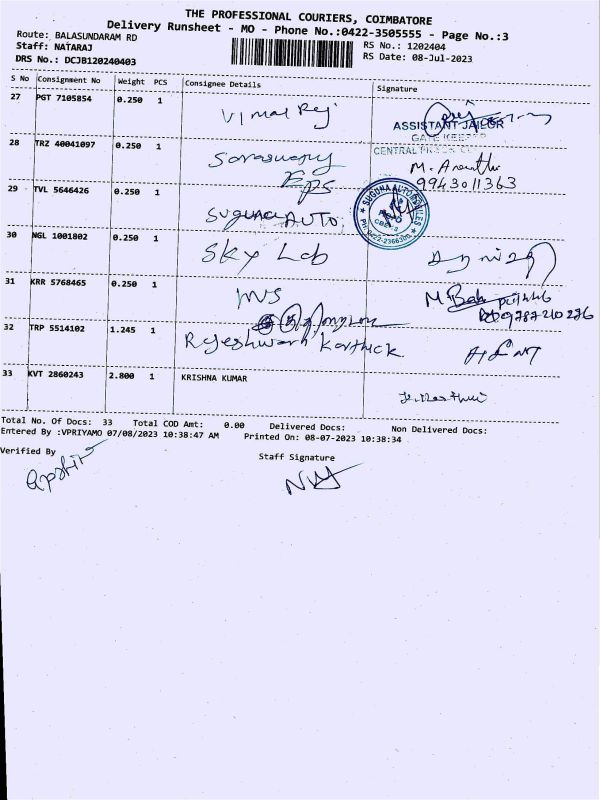 THE PROFESSIONAL COURIERS, COIMBATORE
Delivery Runsheet - MO - Phone No.:0422-3505555 - Page No.:3
Route: BALASUNDARAM RD
Staff: NATARAJ
DRS No.: DCJB120240403
RS No.: 1202404
RS Date: 08-Jul-2023
S No Consignment No Weight PCS Consignee Details Signature
27 PGT 7105854 0.250 1 Vimal Raj
ASSISTANT JAILOR
CENTRAL
28 TRZ 40041097 0.250 1
9943011363
29 TVL 5646426 0.250 1 Suguna AUTO
SUGUNA AUTO
30 NGL 1001802 0.250 1 Sky Lab
31 KRR 5768465 0.250 1
32 TRP 5514102 1.245 1 Rajeshwari Karthick
33 KVT 2860243 2.800 1 KRISHNA KUMAR
Total No. Of Docs: 33 Total COD Amt: 0.00 Delivered Docs: Non Delivered Docs:
Entered By :VPRIYAMO 07/08/2023 10:38:47 AM Printed On: 08-07-2023 10:38:34
Verified By
Staff Signature